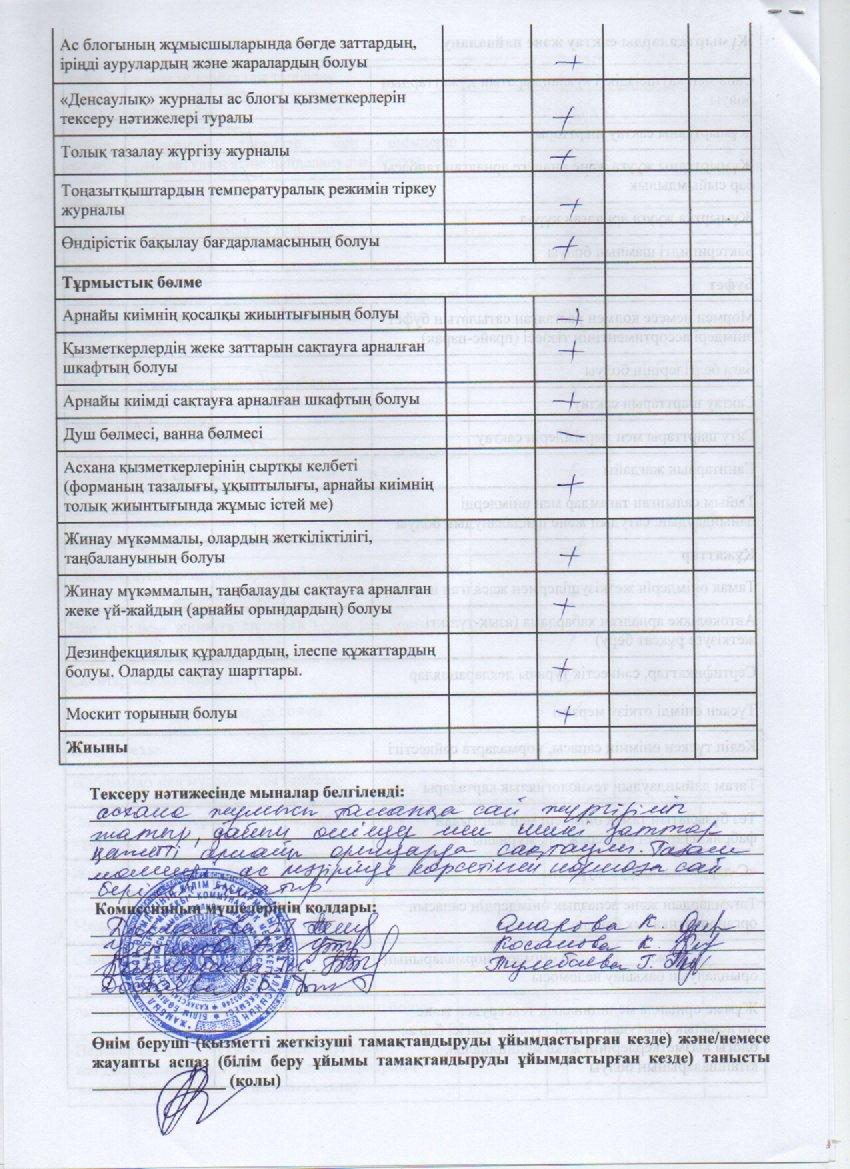 Ас блогының жұмысшыларында бөгде заттардың,
іріңді аурулардың және жаралардың болуы +
«Денсаулық» журналы ас блогы қызметкерлерін
тексеру нәтижелері туралы +
Толық тазалау жүргізу журналы +
Тоңазытқыштардың температуралық режимін тіркеу
журналы +
Өндірістік бақылау бағдарламасының болуы +
Тұрмыстық бөлме
Арнайы киімнің қосалқы жиынтығының болуы +
Қызметкерлердің жеке заттарын сақтауға арналған
шкафтың болуы +
Арнайы киімді сақтауға арналған шкафтың болуы +
Душ бөлмесі, ванна бөлмесі –
Асхана қызметкерлерінің сыртқы келбеті
(форманың тазалығы, ұқыптылығы, арнайы киімнің
толық жиынтығында жұмыс істей ме) +
Жинау мүкәммалы, олардың жеткіліктілігі,
таңбалануының болуы +
Жинау мүкәммалын, таңбалауды сақтауға арналған
жеке үй-жайдың (арнайы орындардың) болуы +
Дезинфекциялық құралдардың, ілеспе құжаттардың
болуы. Оларды сақтау шарттары. +
Москит торының болуы +
Жиыны
Тексеру нәтижесінде мыналар белгіленді:
асхана жұмысы талапқа сай жүргізіліп
жатыр, дайын өнімдер мен шикі заттар
қажетті арнайы орындарда сақтаулы. Тағам
мөлшері ас мәзірінде көрсетілген нормаға сай
Комиссияның мүшелерінің қолдары:
Омарова К.
Косанова К.
Тулебаева Г.
Өнім беруші (қызметті жеткізуші тамақтандыруды ұйымдастырған кезде) және/немесе
жауапты аспаз (білім беру ұйымы тамақтандыруды ұйымдастырған кезде) танысты
(қолы)